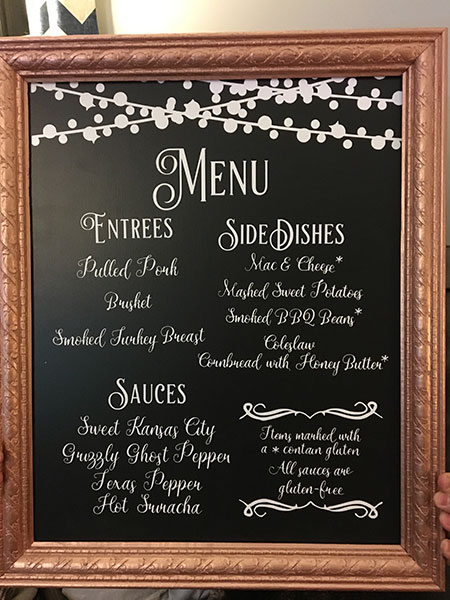 Menu
Entrees
Pulled Pork
Brisket
Smoked Turkey Breast
Side Dishes
Mac & Cheese*
Mashed Sweet Potatoes
Smoked BBQ Beans*
Coleslaw
Cornbread with Honey Butter*
Sauces
Sweet Kansas City
Grizzly Ghost Pepper
Texas Pepper
Hot Sriracha
Items marked with
a * contain gluten
All sauces are
gluten-free